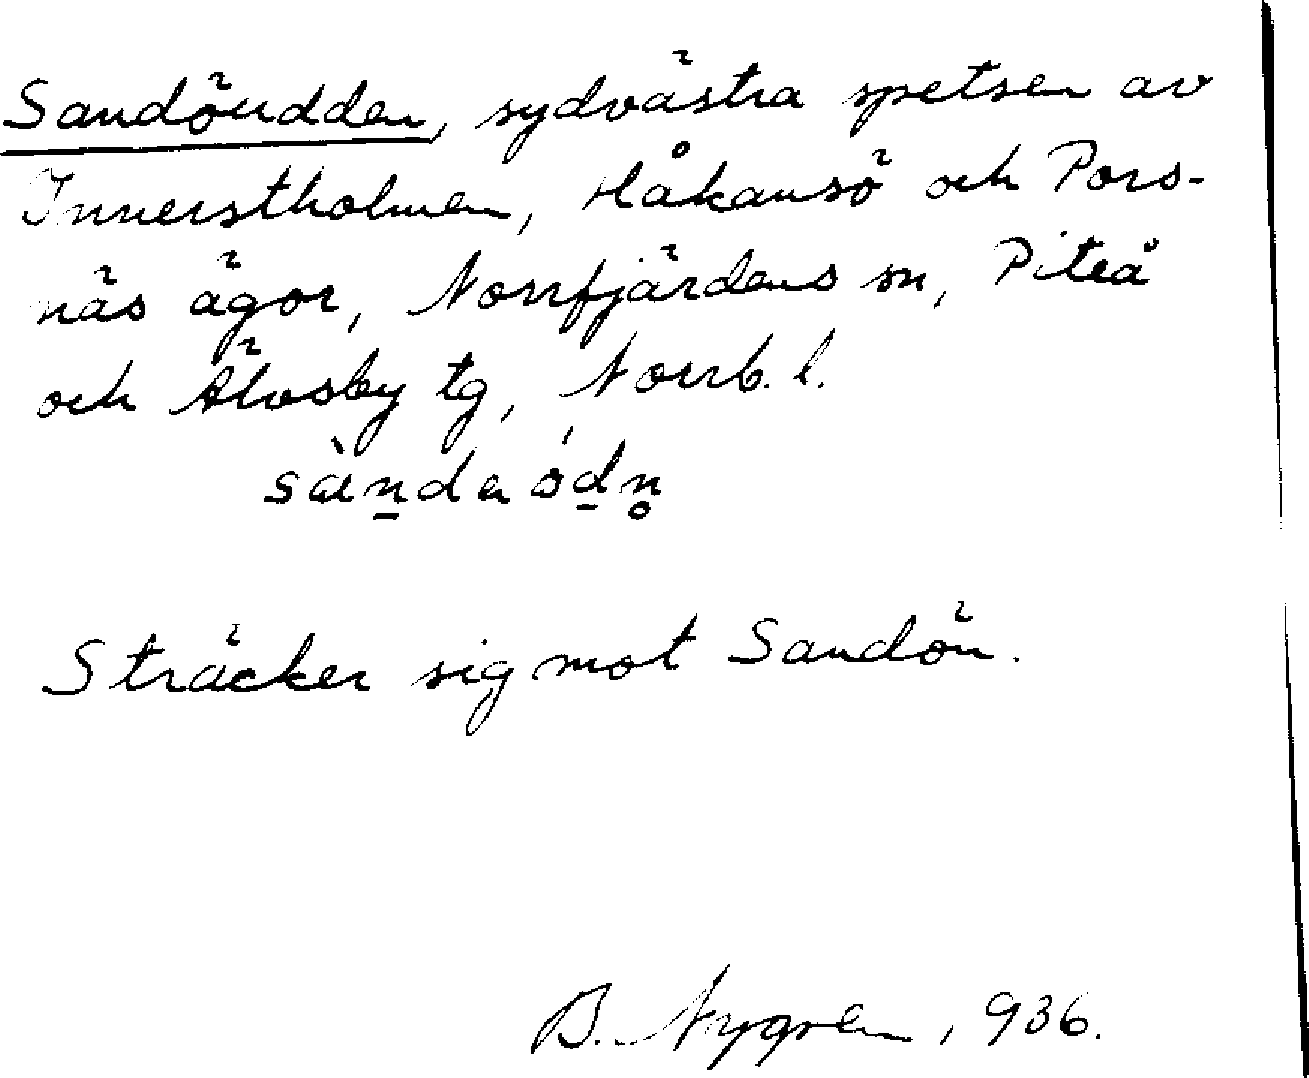 Sandöudden, sydvästra spetsen av
Innerstholmen, Håkansö och Pors-
näs ägor, Norrfjärdens sn, Piteå
och Älvsby tg, Norrb. l.
Sträcker sig mot Sandön.
B. Nygren, 936.